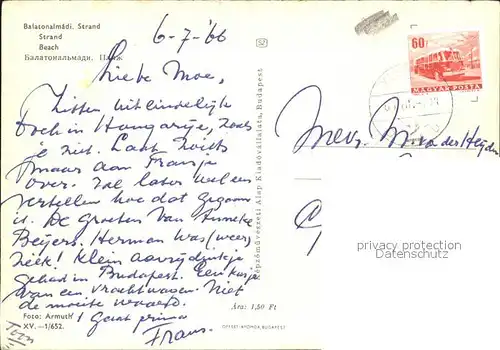 Balatonalmádi. Strand
Strand
Beach
Балатональмади. Пляж
6-7-'66
Lieve Moe,
Zitten uiteindelijk
toch in Hongarije, zoals
je ziet. Laat zoiets
maar aan Fransje
over. Zal later wel een
vertellen hoe dat gegaan
is. De groeten van Anneke
Beijers. Herman was (weer)
ziek! Klein aanrijdinkje
gehad in Budapest. Een kusje
van een vrachtwagen. Niet
de moeite waard.
Gaat prima
Frans.
Foto: Armuth
XV.—1/652.
Toon
Ára: 1,50 Ft
OFFSET-NYOMDA, BUDAPEST
Képzőművészeti Alap Kiadóvállalata, Budapest
60
MAGYAR POSTA
Mevr. van der Heyden
privacy protection
OLDTHING